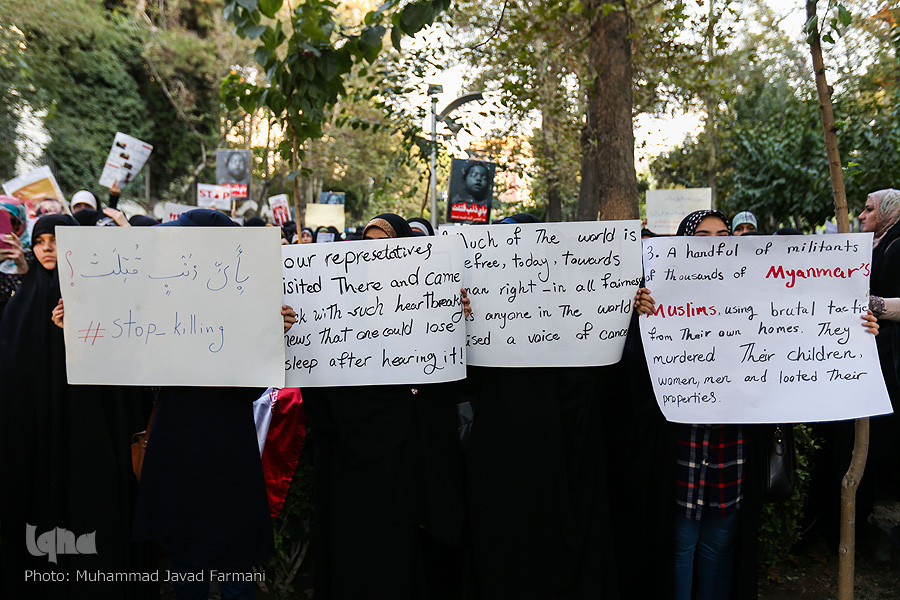 بِأَيِّ ذَنْبٍ قُتِلَتْ ؟
#stop_killing
our represetatives
visited There and came
with such heartbreakig
news that one could lose
sleep after hearing it!
Much of The world is
free, today, towards
right_in all fairness
anyone in The world
a voice of
3. A handful of militants
of thousands of Myanmar's
Muslims, using brutal tactic
from Their own homes. They
murdered Their children,
women, men and looted Their
properties.
STOP
iqna
Photo: Muhammad Javad Farmani